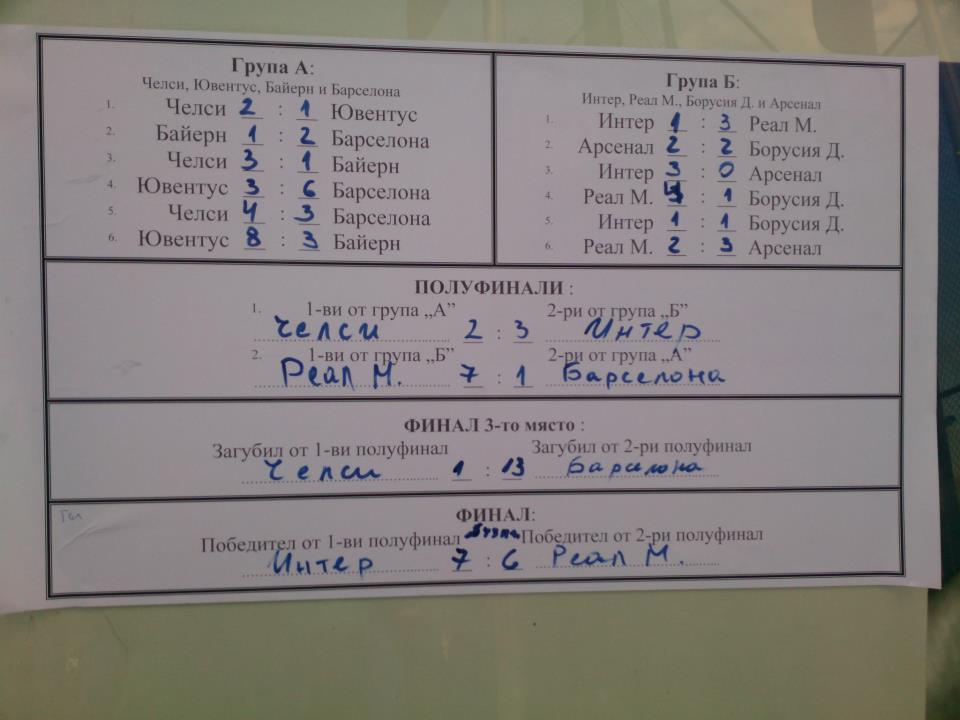 Група А:
Челси, Ювентус, Байерн и Барселона
1. Челси 2 : 1 Ювентус
2. Байерн 1 : 2 Барселона
3. Челси 3 : 1 Байерн
4. Ювентус 3 : 6 Барселона
5. Челси 4 : 3 Барселона
6. Ювентус 8 : 3 Байерн
Група Б:
Интер, Реал М., Борусия Д. и Арсенал
1. Интер 1 : 3 Реал М.
2. Арсенал 2 : 2 Борусия Д.
3. Интер 3 : 0 Арсенал
4. Реал М. : 1 Борусия Д.
5. Интер 1 : 1 Борусия Д.
6. Реал М. 2 : 3 Арсенал
ПОЛУФИНАЛИ :
1. 1-ви от група „А” 2-ри от група „Б”
Челси 2 : 3 Интер
2. 1-ви от група „Б” 2-ри от група „А”
Реал М. 7 : 1 Барселона
ФИНАЛ 3-то място :
Загубил от 1-ви полуфинал Загубил от 2-ри полуфинал
Челси 1 : 13 Барселона
ФИНАЛ:
Победител от 1-ви полуфинал Победител от 2-ри полуфинал
Интер 7 : 6 Реал М.